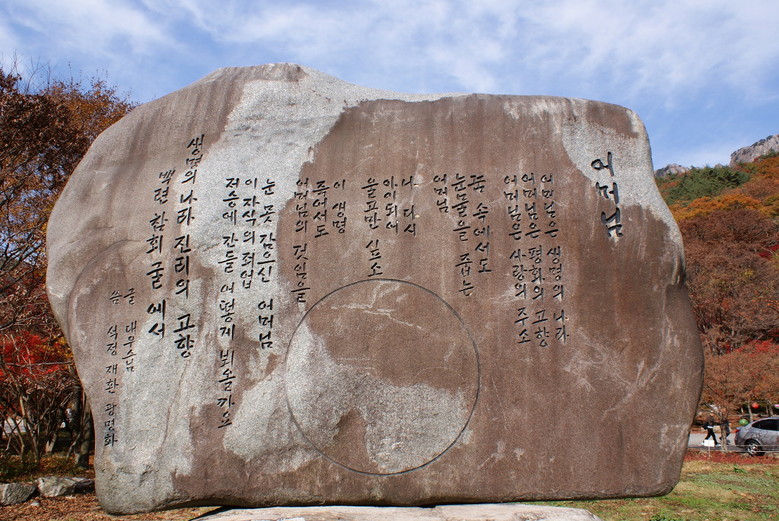 어머님
어머님은 생명의 나라
어머님은 평화의 고향
어머님은 사랑의 주소
꿈 속에서도
눈물을 줍는
어머님
나 다시
아이되어
울고만 싶으오
이 생명
죽어서도
어머님의 것임을
눈 못 감으신 어머님
이 자식의 죄업
저승에 간들 어떻게 뵈올까요
생명의 나라 진리의 고향
백련 참회 굴에서
글 대우스님
씀 석정 재환 광명화